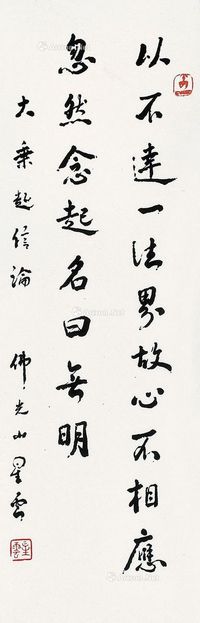 以不達一法界故心不相應
忽然念起名曰無明
大乘起信論 佛光山星雲
星雲